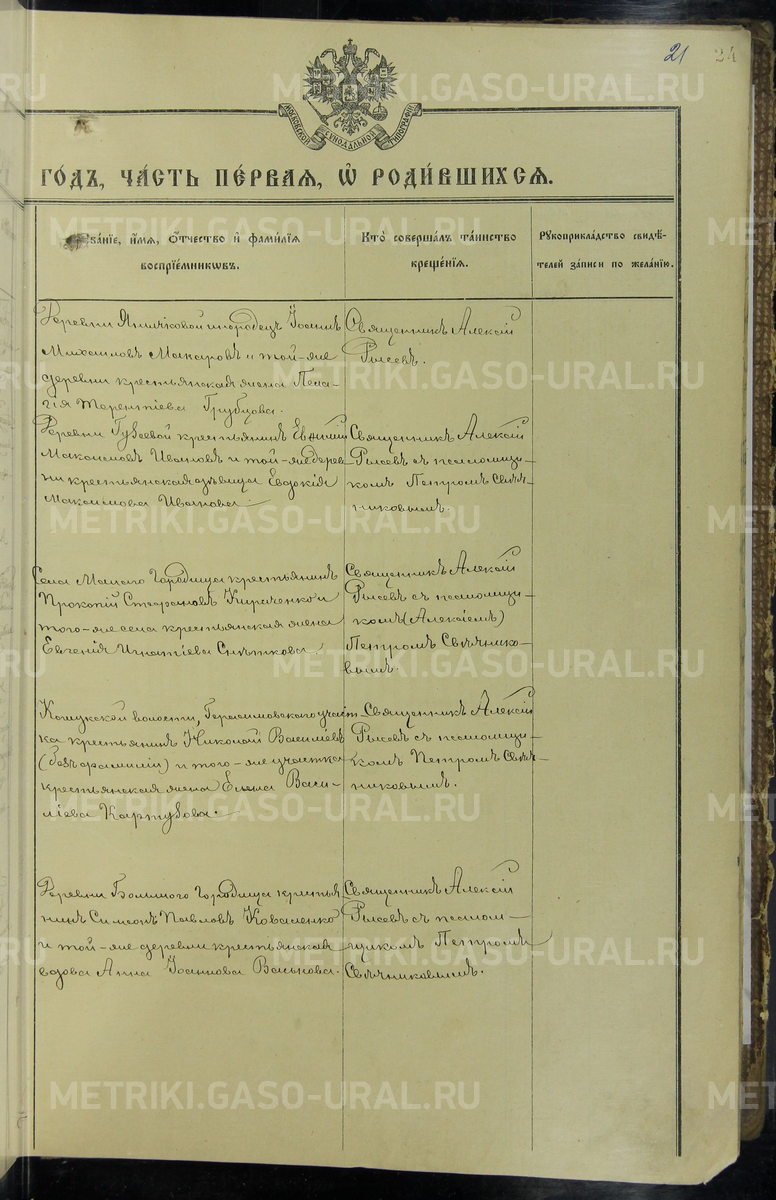 21 24
МОСКОВСКОЙ СѴНОДАЛЬНОЙ ТИПОГРАФІИ
ГО́ДЪ, ЧА́СТЬ ПЕ́РВАЯ, Ѽ РОДИ́ВШИХСѦ.
Зва́нїе, и́мѧ, о́тчество и фами́лїѧ
воспрїе́мникѡвъ.
Кто̀ соверша́лъ та́инство
креще́нїѧ.
Рꙋкоприкла́дство свидѣ́-
телей за́писи по жела́нїю.
Деревни Яничковой инородецъ Іоаннъ
Михаиловъ Макаровъ и той-же
деревни крестьянская жена Пела-
гія Терентіева Грубцова.
Священникъ Алексій
Рысевъ.
Деревни Гузеевой крестьянинъ Евѳимій
Максимовъ Ивановъ и той-же дерев-
ни крестьянская дѣвица Евдокія
Максимова Иванова.
Священникъ Алексій
Рысевъ съ псаломщи-
комъ Петромъ Свѣч-
никовымъ.
Села Малаго Городища крестьянинъ
Прокопій Стефановъ Кириченко и
того-же села крестьянская жена
Евгенія Игнатіева Снѣткова.
Священникъ Алексій
Рысевъ съ псаломщи-
комъ (Алексіемъ)
Петромъ Свѣчнико-
вымъ.
Кошукской волости, Герасимовскаго участ-
ка крестьянинъ Николай Василіевъ
(безъ фамиліи) и того-же участка
крестьянская жена Елена Васи-
ліева Картузова.
Священникъ Алексій
Рысевъ съ псаломщи-
комъ Петромъ Свѣч-
никовымъ.
Деревни Большого Городища крестья-
нинъ Симеонъ Павловъ Коваленко
и той-же деревни крестьянская
вдова Анна Іоаннова Васькова.
Священникъ Алексій
Рысевъ съ псалом-
щикомъ Петромъ
Свѣчниковымъ.
METRIKI.GASO-URAL.RU